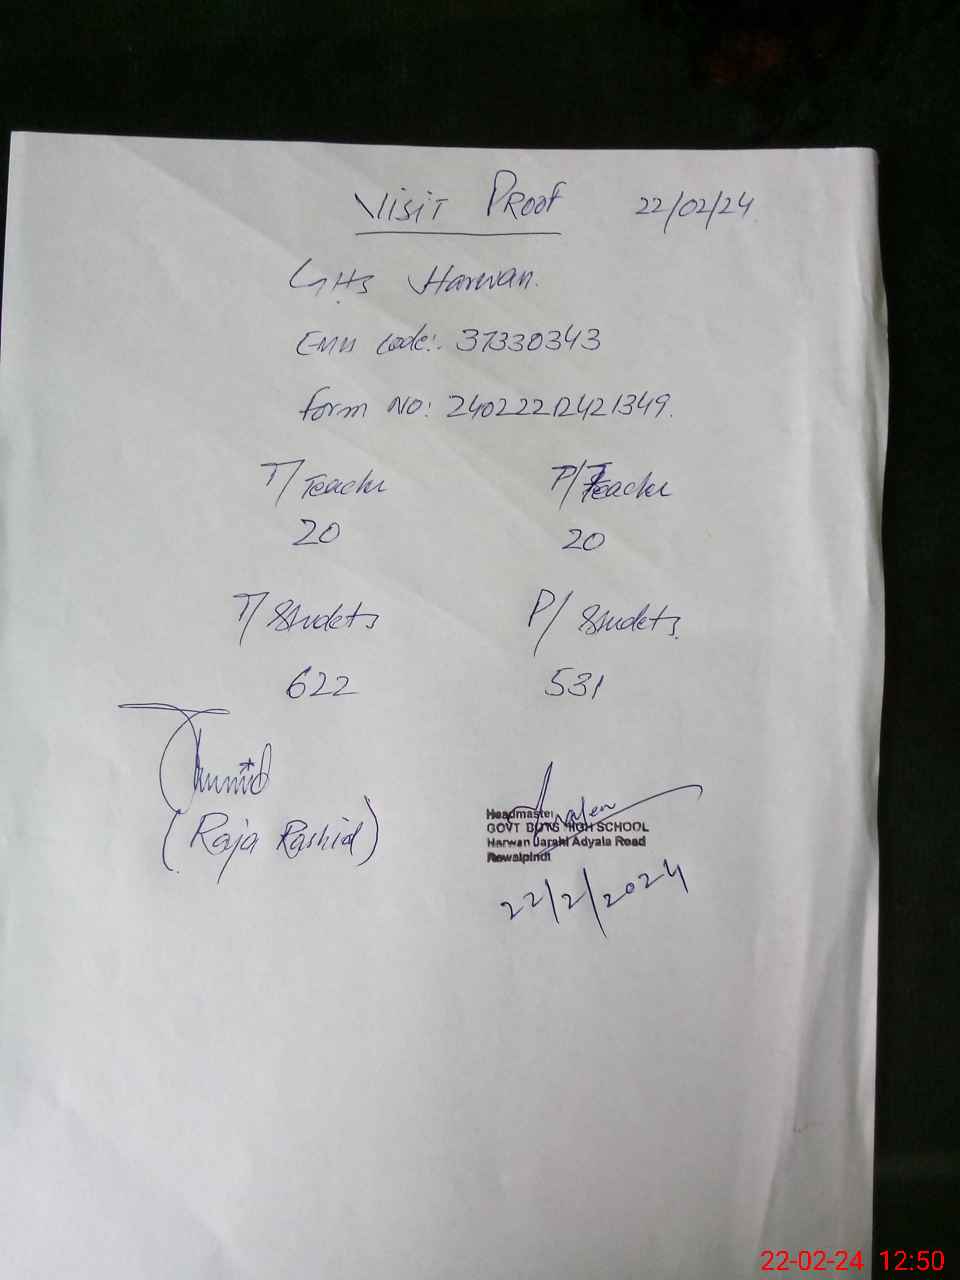 Visit Proof 22/02/24
GHS Harwan.
Emis Code:- 37330343
Form No: 24022212421349.
T/Teacher P/Teacher
20 20
T/Students P/Students.
622 531
(Raja Rashid)
Headmaster
GOVT BOYS HIGH SCHOOL
Harwan Jarahi Adyala Road
Rawalpindi
22/2/2024
22-02-24 12:50